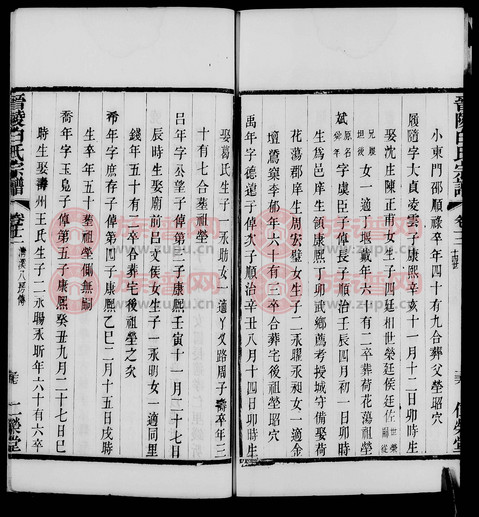 晉陵白氏宗譜
小東門邵順祿卒年四十有九合葬父塋昭穴
履隨字大貞凌雲子康熙辛亥十一月十二日卯時生
娶沈庄陳正甫女生子四廷相世榮廷侯廷佐
女一適丁堰戴年六十有二卒葬荷花蕩祖塋
斌字虞臣子偉長子順治壬辰四月初一日卯時
生為邑庠生領康熙丁卯武鄉薦考授城守備娶荷
花蕩郡庠生周宏璧女生子二永曜永叔女一適金
壇薦樂李郁年六十有三卒合葬宅後祖塋昭穴
禹年字德遠子偉次子順治辛丑八月十四日卯時生
娶葛氏生子一永助女一適丫叉路周子壽卒年三
十有七合葬祖塋
呂年字丞望子偉三子康熙壬寅十一月二十七日
辰時生娶廟前呂文俟女生子一永明女一適同里
錢年五十有三卒合葬宅後祖塋之次
希年字庶存子偉第四子康熙乙巳二月十五日戌時
生卒年五十葬祖塋側無嗣
喬年字玉鳧子偉第五子康熙癸丑九月二十七日巳
時生娶壽州王氏生子二永暘永昕年六十有六卒
晉陵白氏宗譜
卷十二
清溪八房傳
二榮堂
族譜网
www.zupu.cn